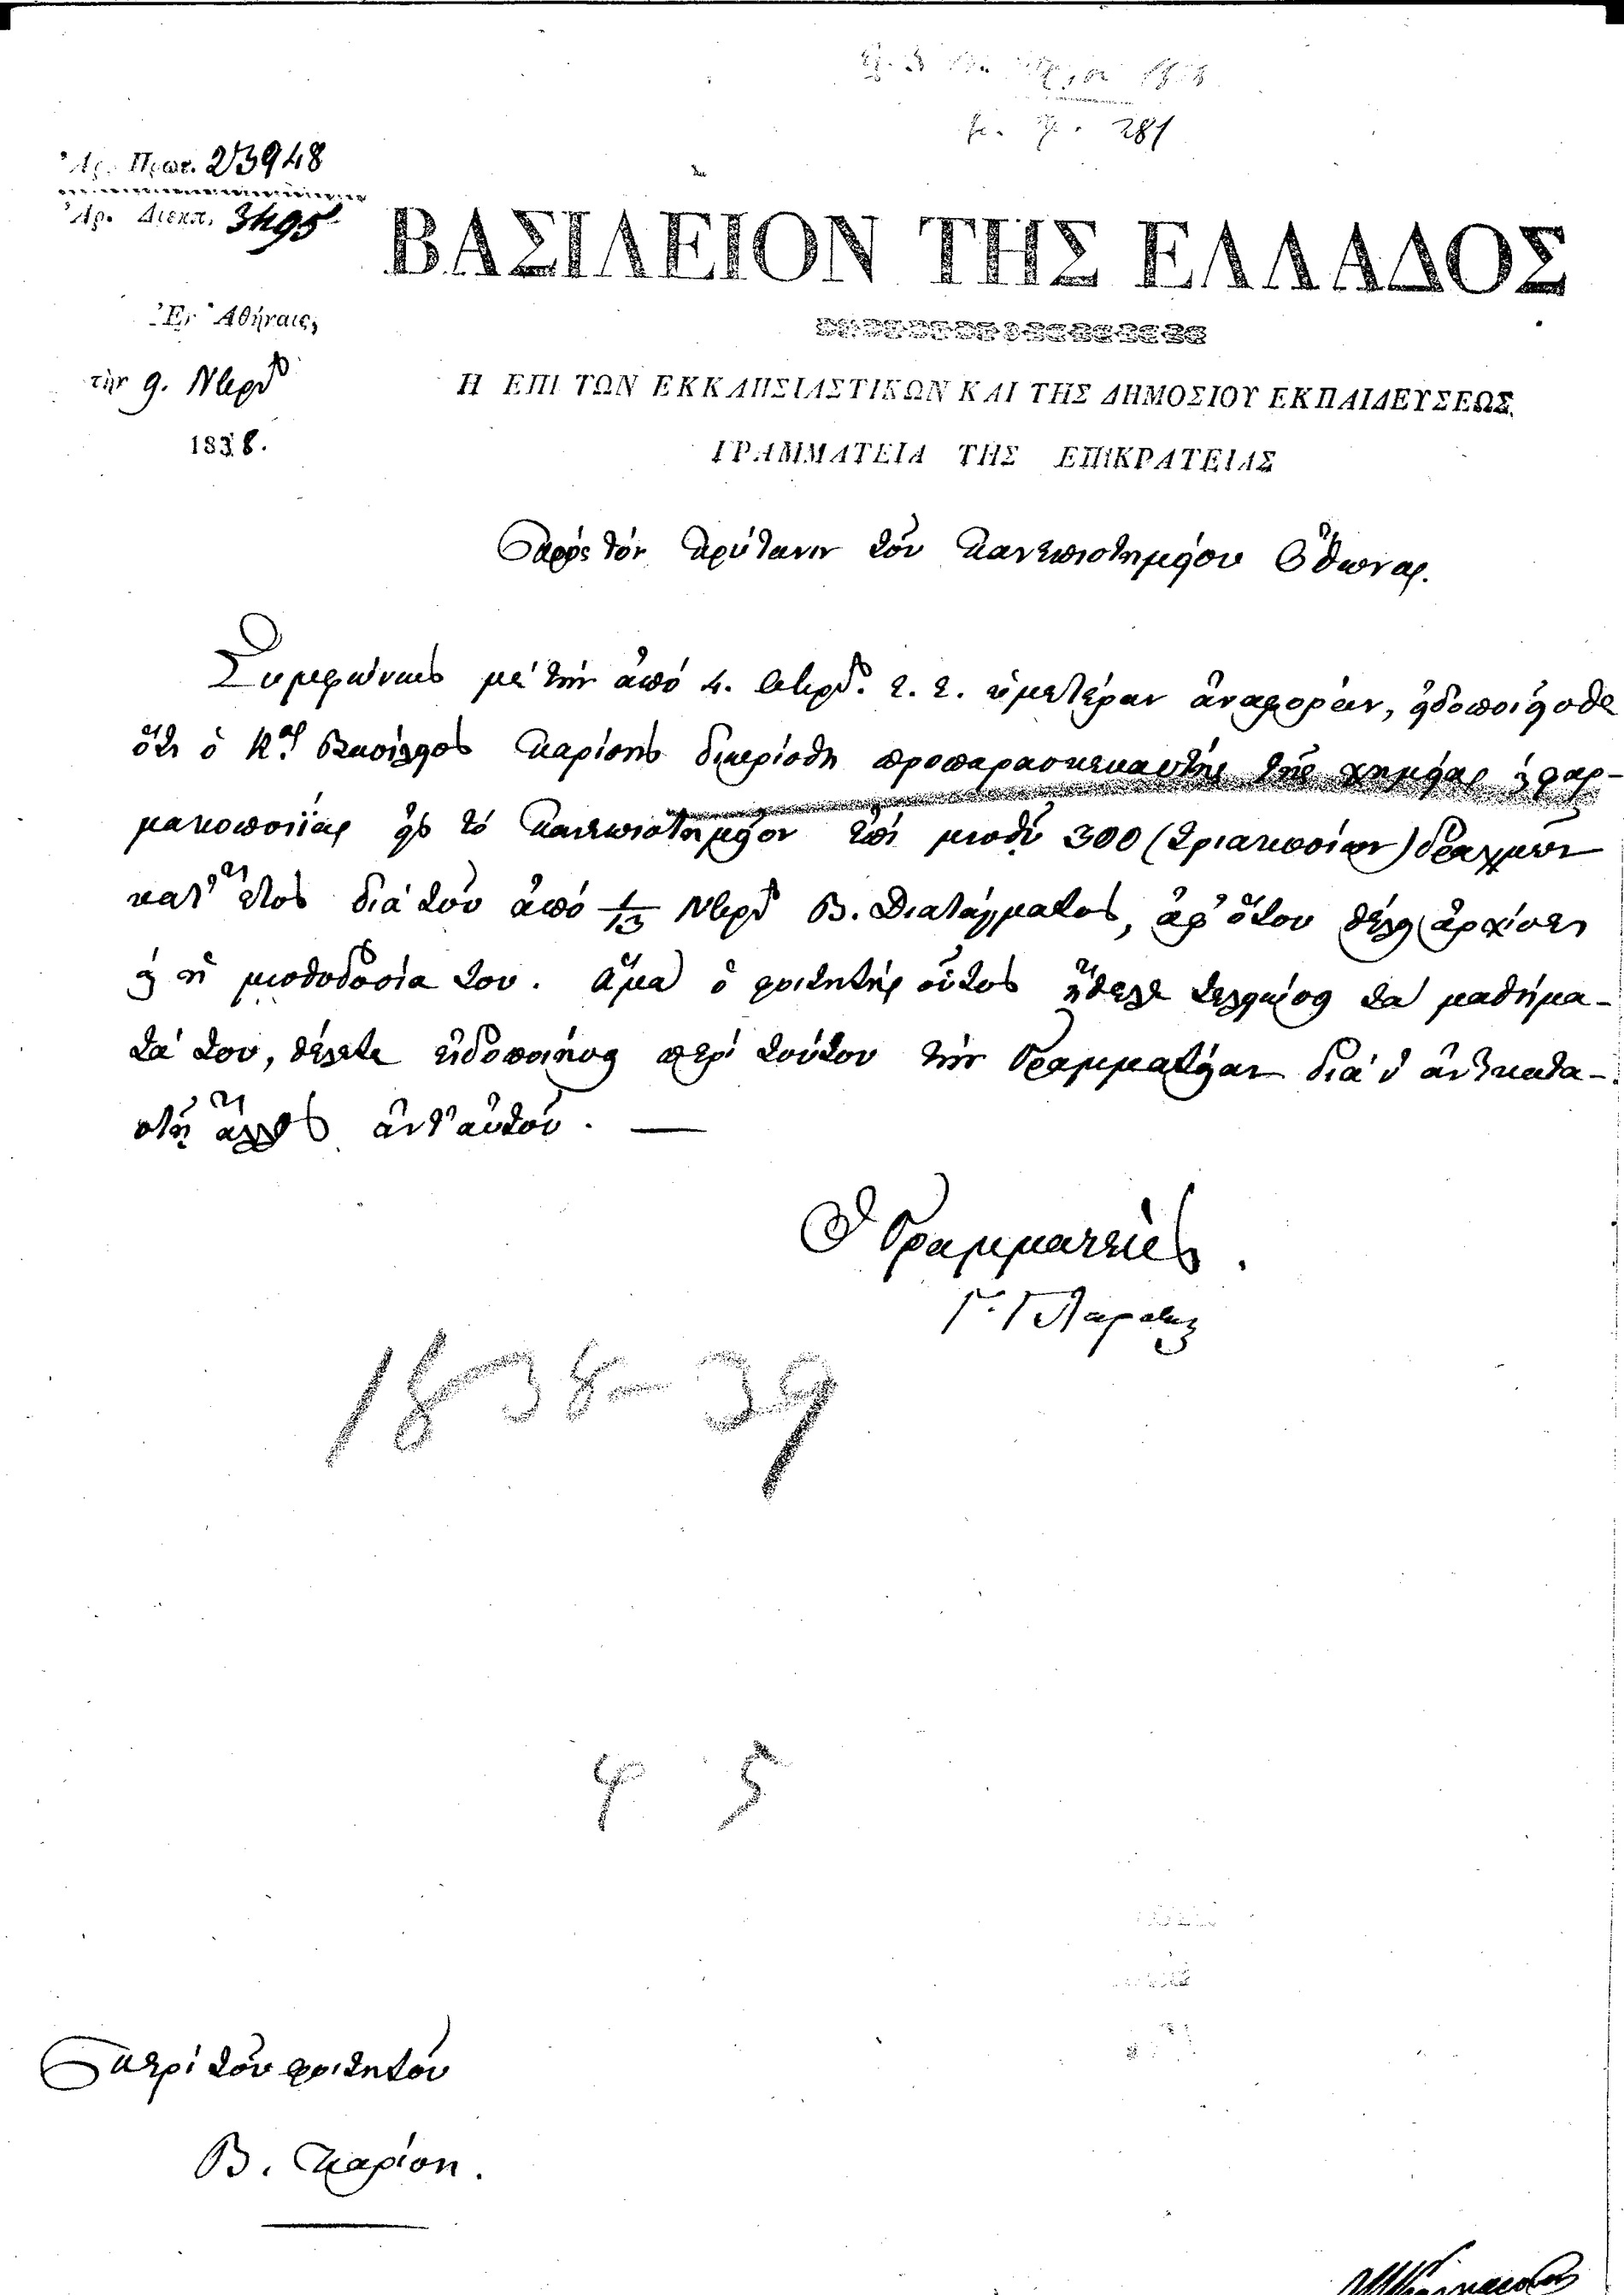 281
Ἀρ. Πρωτ. 23948
Ἀρ. Διεκπ. 3495
ΒΑΣΙΛΕΙΟΝ ΤΗΣ ΕΛΛΑΔΟΣ
Ἐν Ἀθήναις,
τὴν 9. Νβρίου
1838.
Η ΕΠΙ ΤΩΝ ΕΚΚΛΗΣΙΑΣΤΙΚΩΝ ΚΑΙ ΤΗΣ ΔΗΜΟΣΙΟΥ ΕΚΠΑΙΔΕΥΣΕΩΣ
ΓΡΑΜΜΑΤΕΙΑ ΤΗΣ ΕΠΙΚΡΑΤΕΙΑΣ
Πρὸς τὸν πρύτανιν τοῦ Πανεπιστημείου Ὄθωνος.
Συμφώνως μὲ τὴν ἀπὸ 4. Ὀκτβρίου ἔ. ἔ. ὑμετέραν ἀναφοράν, εἰδοποιεῖσθε
ὅτι ὁ Κος Βασίλειος Παρίσης διωρίσθη προπαρασκευαστὴς τῆς χημείας καὶ φαρ-
μακοποιίας εἰς τὸ Πανεπιστημεῖον ἐπὶ μισθῷ 300 (τριακοσίων) δραχμῶν
κατ' ἔτος διὰ τοῦ ἀπὸ 1/13 Νβρίου Β. Διατάγματος, ἀφ' ὅτου θέλει ἀρχίσει
καὶ ἡ μισθοδοσία του. Ἅμα ὁ φοιτητὴς οὗτος ἤθελε τελειώσει τὰ μαθήμα-
τά του, θέλετε εἰδοποιήσει περὶ τούτου τὴν Γραμματείαν διὰ ν' ἀντικατα-
στῇ ἄλλος ἀντ' αὐτοῦ. —
Ὁ Γραμματεὺς.
Γ. Γλαράκης
1838-39
4 5
Περὶ τοῦ φοιτητοῦ
Β. Παρίση.